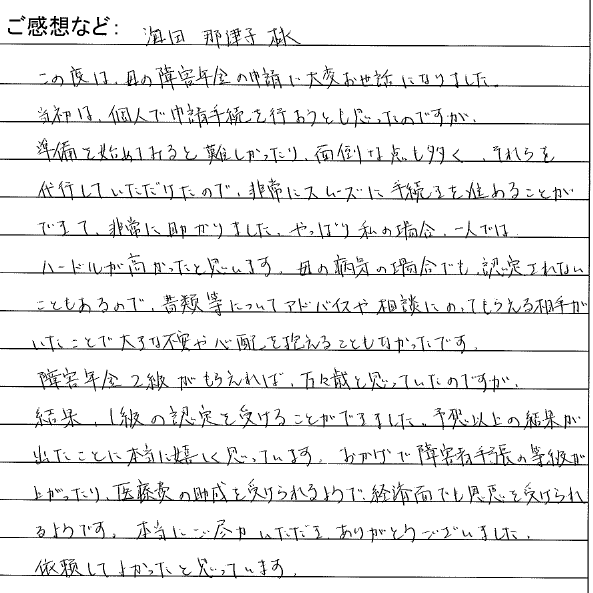 ご感想など： 海田 那津子 様
この度は、母の障害年金の申請に大変お世話になりました。
当初は、個人で申請手続を行おうとも思ったのですが、
準備を始めてみると難しかったり、面倒な点も多く、それらを
代行していただけたので、非常にスムーズに手続きを進めることが
できて、非常に助かりました。やっぱり私の場合、一人では
ハードルが高かったと思います。母の病気の場合でも、認定されない
こともあるので、書類等についてアドバイスや相談にのってもらえる相手が
いたことで大きな不安や心配を抱えることもなかったです。
障害年金2級がもらえれば、万々歳と思っていたのですが、
結果、1級の認定を受けることができました。予想以上の結果が
出たことに本当に嬉しく思っています。おかげで障害者手帳の等級が
上がったり、医療費の助成を受けられるようで、経済面でも恩恵を受けられ
るようです。本当にご尽力いただき、ありがとうございました。
依頼してよかったと思っています。